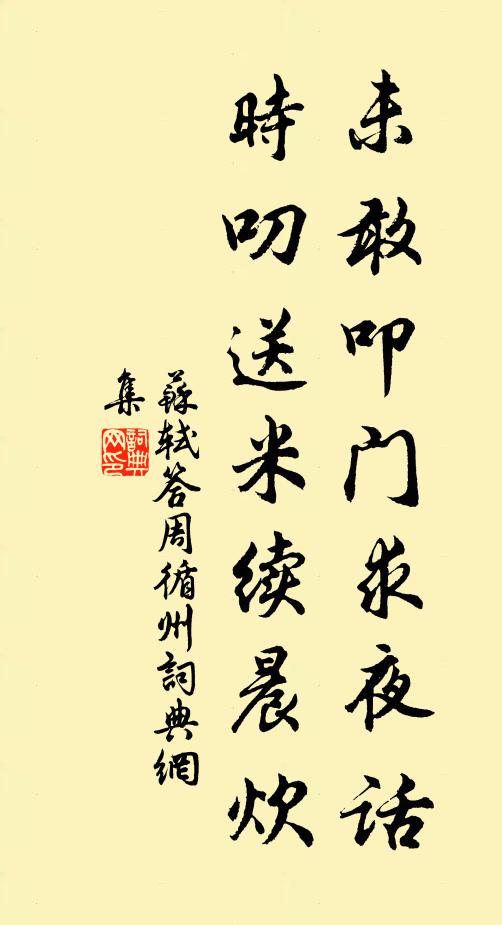 未敢叩门求夜话
时叨送米续晨炊
蘇軾答周循州詞典網
集
詞典
网印